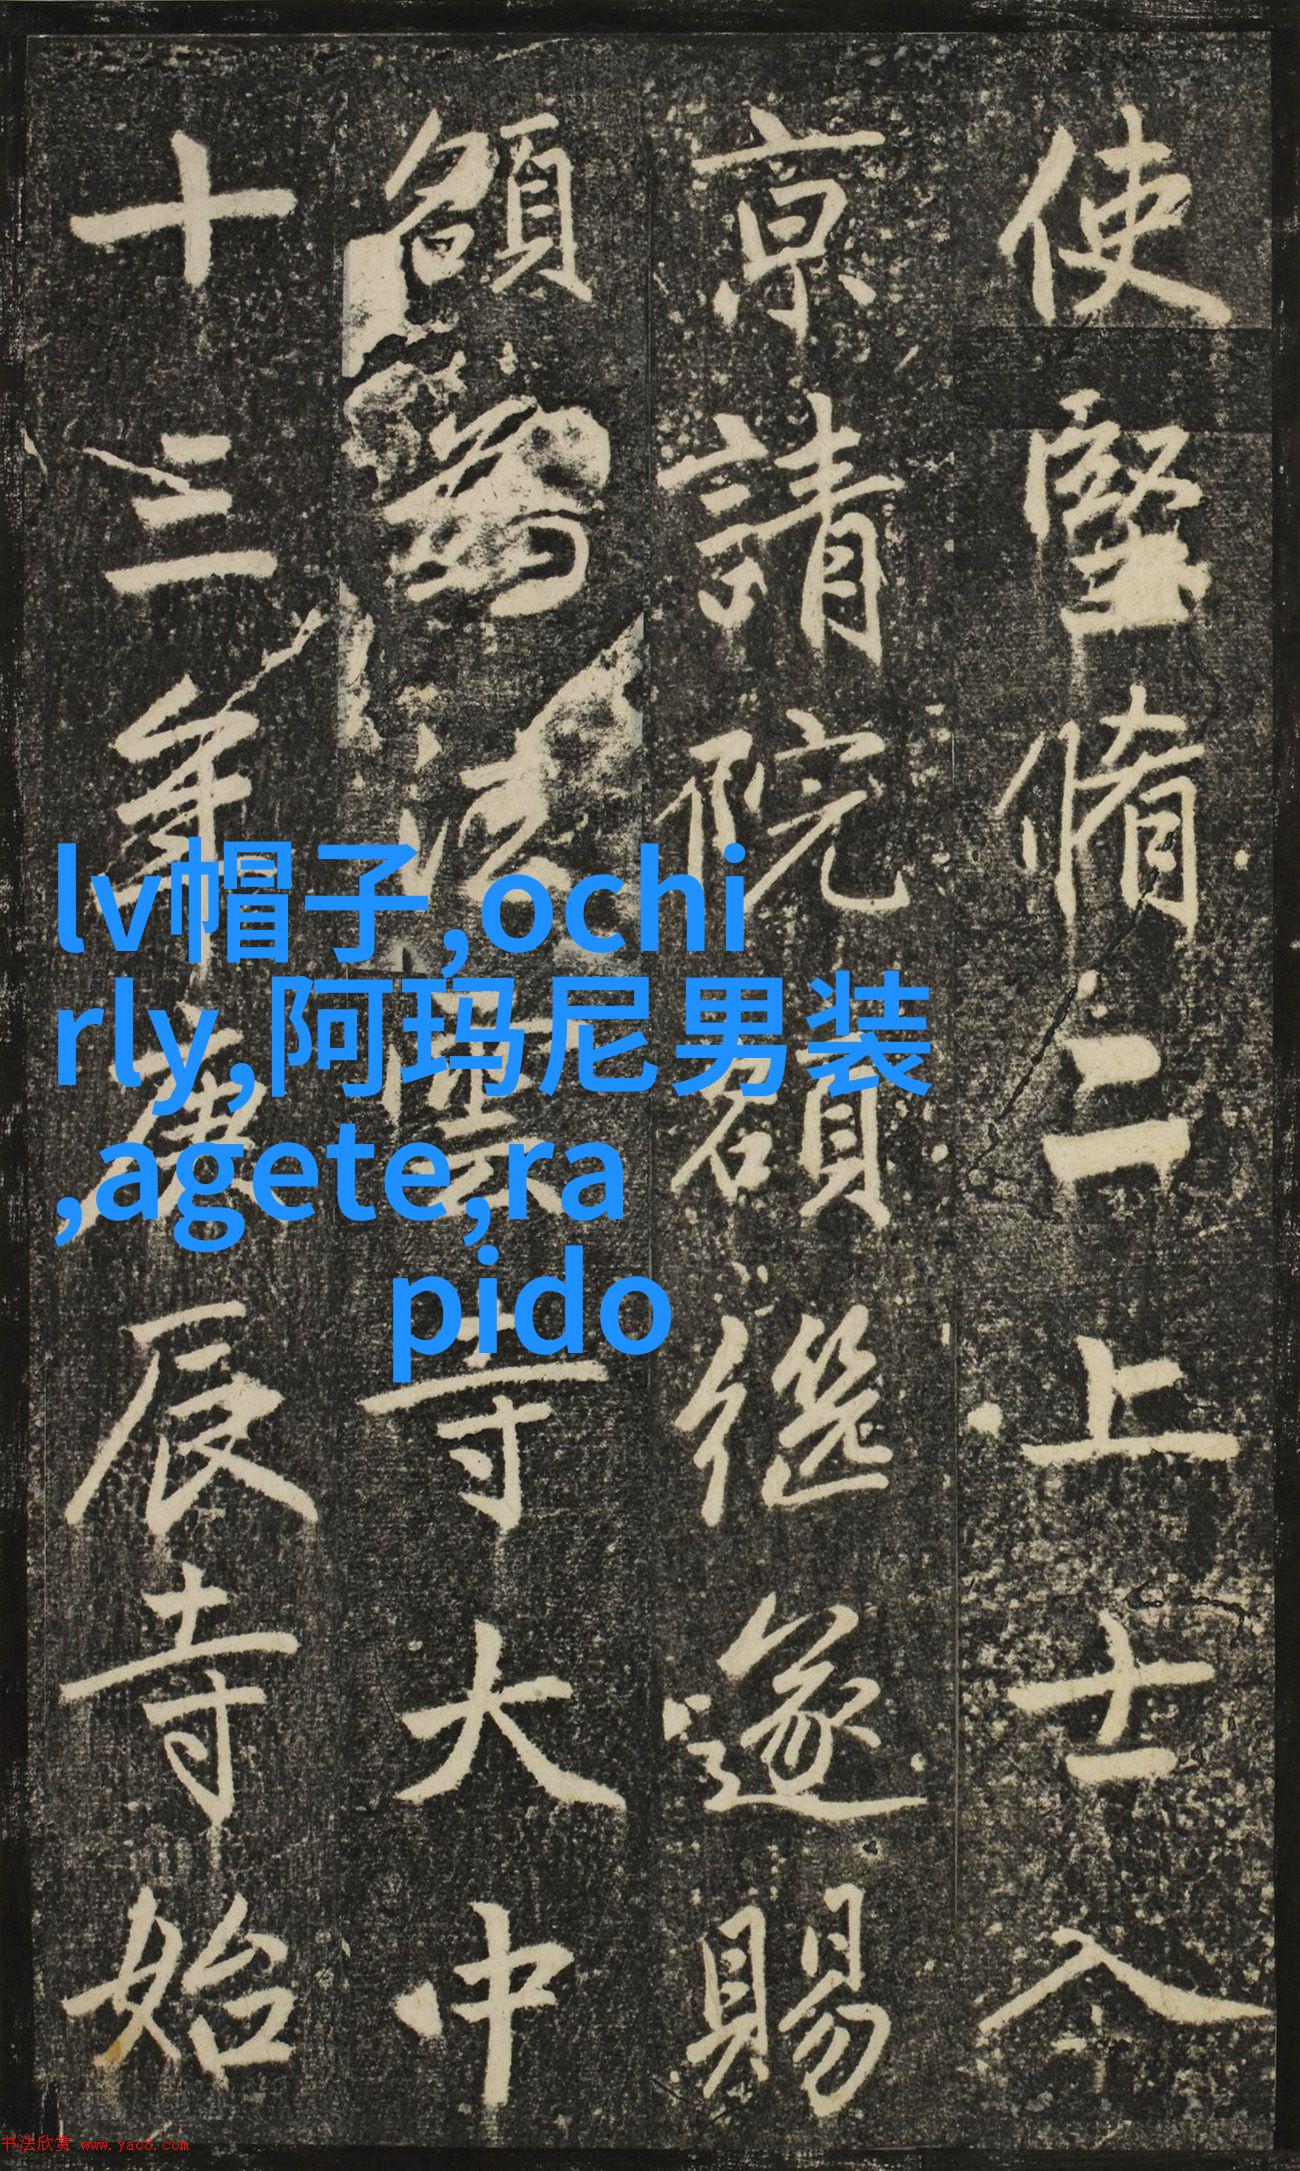 使堅脩二上士入
京請院額繼遂賜
額為法雲寺大中
十三年庚辰寺始
lv帽子,ochi
rly,阿玛尼男装
,agete,ra
pido
书法欣赏 www.yac8.com